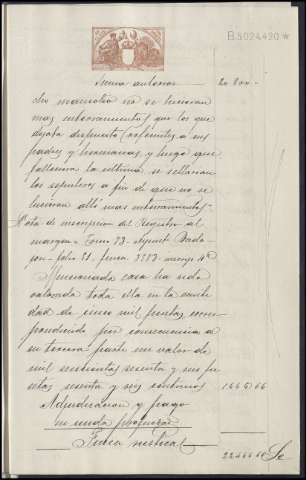 B.5024420 *
Suma anterior 20 800
Su memoria no se hicieran
mas enterramientos que los que
dejaba dispuesto referentes a sus
padres y hermanas, y luego que
falleciera la ultima se sellaran
los sepulcros a fin de que no se
hicieran allí mas enterramientos
Nota de inscripcion del Registro al
margen Tomo folio finca
Mencionada casa ha sido
valorada toda ella en la canti-
dad de cinco mil pesetas, corres-
pondiendo por consecuencia a
su tercera parte un valor de
mil seiscientas sesenta y seis pe-
setas sesenta y seis centimos 1666,66
Adjudicacion y pago
Finca rustica